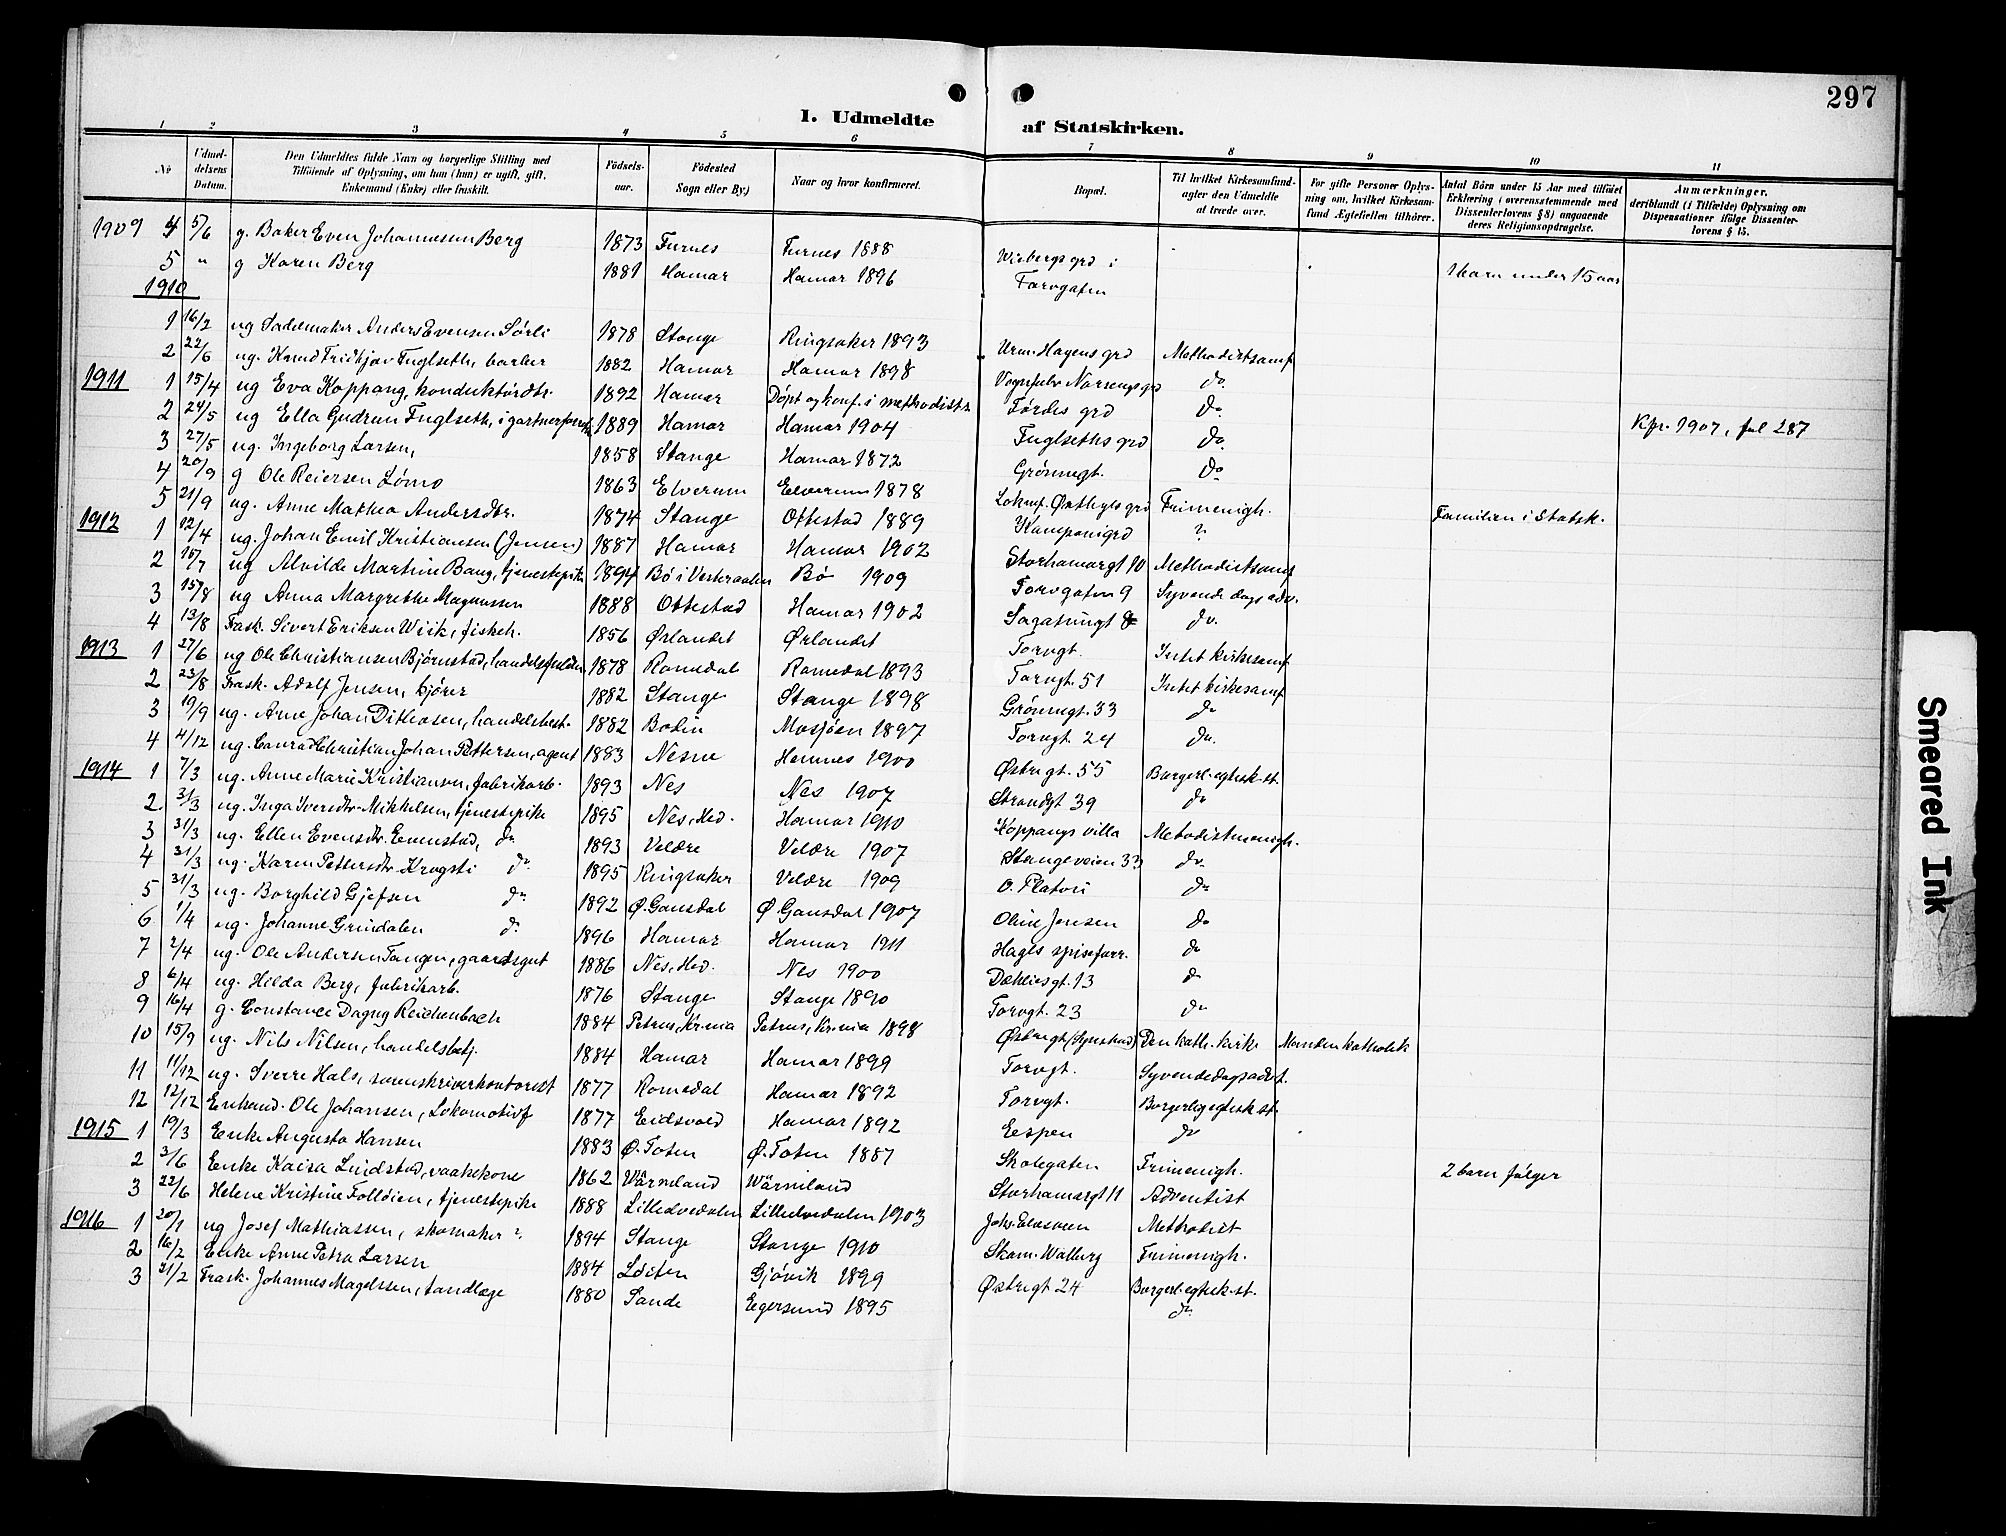 297
I. Udmeldte af Statskirken.
1 2 3 4 5 6 7 8 9 10 11
№ Udmel-delsens Datum. Den Udmeldtes fulde Navn og borgerlige Stilling med Tilføiende af Oplysning, om han (hun) er ugift, gift, Enkemand (Enke) eller fraskilt. Fødsels-aar. Fødested Sogn eller By) Naar og hvor konfirmeret. Bopæl. Til hvilket Kirkesamfund agter den Udmeldte at træde over. For gifte Personer Oplysning om, hvilket Kirkesamfund Ægtefællen tilhører. Antal Børn under 15 Aar med tilføiet Erklæring i overensstemmende med Dissenterlovens § 8) angaaende deres Religionsopdragelse. Anmærkninger, deriblandt (i Tilfælde) Oplysning om Dispensationer ifølge Dissenterlovens § 15.
1909 4 5/6 g. Baker Even Johannesen Berg 1873 Furnes Furnes 1888 Wibergs grd i
5 " g Karen Berg 1881 Hamar Hamar 1896 Torvgaten 1 barn under 15 aar
1910
1 16/2 ug Sadelmaker Anders Evensen Sørli 1878 Stange Ringsaker 1893 Urm. Hagens grd Methodistsamf
2 22/6 ug. Knud Fridtjov Fuglseth, barber 1882 Hamar Hamar 1898 do
1911 1 15/4 ug Eva Koppang, konduktørdtr. 1892 Hamar Døpt og konf. i methodists Førdes grd do
2 24/5 ug Ella Gudrun Fuglseth, i gartnerforretn 1889 Hamar Hamar 1904 Fuglseths grd do Kfr. 1907, fol 287
3 27/5 ug. Ingeborg Larsen, 1858 Stange Hamar 1872 Grønnegt. do
4 20/9 g Ole Reiersen Lømo 1863 Elverum Elverum 1878 Lokmf. Østbyes grd Frimenigh. Familien i Statsk.
5 21/9 ug. Anne Mathea Andersdtr. 1874 Stange Ottestad 1889 ?
1912 1 12/4 ug. Johan Emil Kristiansen (Jensen) 1887 Hamar Hamar 1902 Storhamargt 10 Methodistsamf
2 16/7 ug Alvilde Martine Bang, tjenestepike 1894 Bø i Vesteraalen Bø 1909 Torvgaten 9 Syvende dags adv.
3 15/8 ug Anna Margrethe Magnussen 1888 Ottestad Hamar 1902 do.
4 13/8 Frask. Sivert Eriksen Wiik, fiskeh. 1856 Ørlandet Ørlandet Torvgt. Intet kirkesamf
1913 1 27/6 ug Ole Christiansen Bjørnstad, 1878 Romedal Romedal 1893 Torvgt. 51 Intet kirkesamf
2 23/8 Frask. Adolf Jensen, kjører 1882 Stange Stange 1898 Grønnegt. 33 do
3 19/9 ug. Arne Johan Dithosen, handelsbest. 1882 Bodin Mosjøen 1897 Torvgt. 24 do.
4 4/12 ug. Conrad Christian Johan Pettersen, agent 1883 Nesne Hemnes 1900 Østregt. 55 Borgerl. egtesk.st.
1914 1 7/3 ug. Anne Marie Kristiansen, fabrikarb. 1893 Nes Nes 1907 Strandgt 39 do
2 31/3 ug. Inga Iversdtr. Mikkelsen, tjenestepike 1895 Nes, Hed. Hamar 1910 Koppangs villa Metodistmenigh.
3 31/3 ug. Ellen Evensdtr. Evenstad, do 1893 Veldre Veldre 1907 Stangeveien 33 do.
4 31/3 ug. Karen Pettersdtr. Krogsti do. 1895 Ringsaker Veldre 1909 O. Platou do
5 31/3 ug. Borghild Gjefsen do. 1892 Ø. Gausdal Ø Gausdal 1907 Oline Jensen do
6 1/4 ug. Johanne Grindalen do. 1896 Hamar Hamar 1911 Hagls spiseforr. do
7 2/4 ug. Ole Andersen Tangen, gaardsgut 1886 Nes, Hed. Nes 1900 Dæhliesgt. 13 do
8 6/4 ug. Hilda Berg, fabrikarb. 1876 Stange Stange 1890 Torvgt. 23 do
9 16/4 g. Constance Dagny Reichenbach 1884 Petrus, Kr.nia Petrus, Kr.nia 1898 Østregt. Den kath. kirke Manden katholik
10 15/9 ug. Nils Nilsen, handelsbetj. 1884 Hamar Hamar 1899 Torvgt. Syvendedagsadvt.
11 11/12 ug. Sverre Hals, sorenskriverkontorist 1877 Romedal Hamar 1892 Torvgt. Borgerlig egtesk.st.
12 12/12 Enkemd. Ole Johansen, Lokomotivf 1877 Eidsvold Hamar 1892 Eespen do
1915 1 19/3 Enke Augusta Hansen 1883 Ø. Toten Ø. Toten 1887 Skolegaten Frimenigh. 2 barn følger
2 3/6 Enke Kaisa Lindstad, vaskekone 1862 Värmland Wärmland Storhamargt 11 Adventist
3 22/6 Helene Kristine Folldien, tjenestepike 1888 Lilleelvedalen Lilleelvedalen 1903 Methodist
1916 1 20/1 ug Josef Mathiassen, skomaker 1894 Stange Stange 1910 Skom. Walberg Frimenigh.
2 16/2 Enke Anne Petra Larsen 1884 Løiten Gjøvik 1899 Østregt 24 Borgerl. egtesk.st.
3 21/2 Frask. Johannes Magelssen, tandlæge 1880 Sande Egersund 1895 do.
Smeared Ink